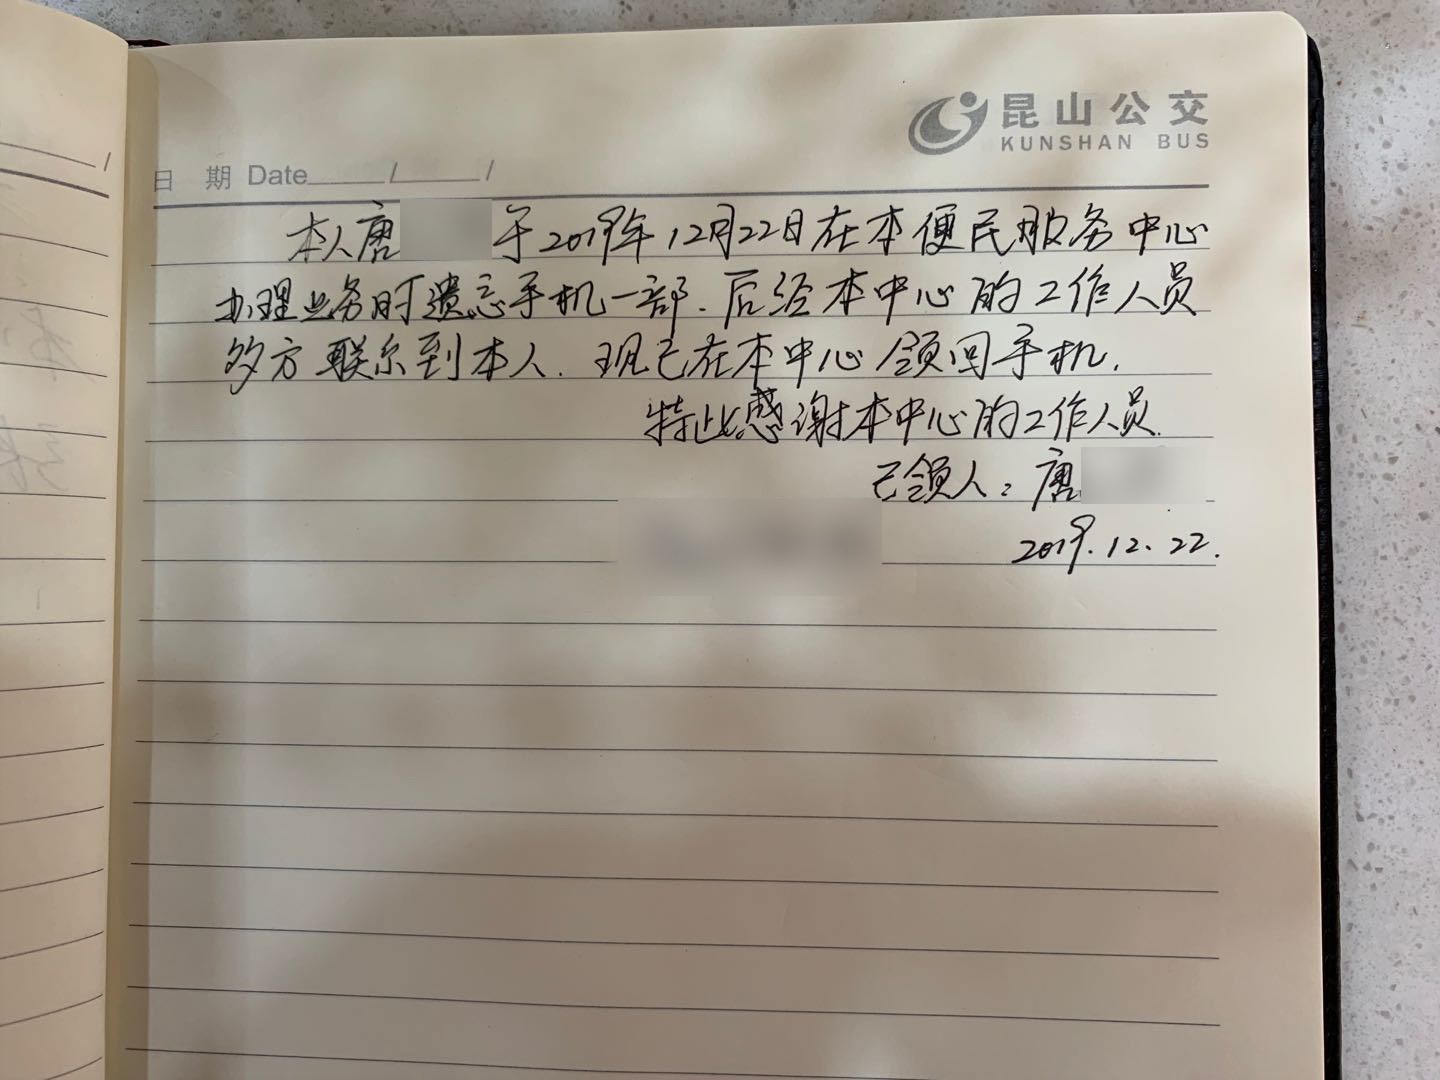 昆山公交
KUNSHAN BUS
日 期 Date____/____/
本人唐 于2019年12月22日在本便民服务中心
办理业务时遗忘手机一部.后经本中心的工作人员
多方联系到本人.现已在本中心领回手机.
特此感谢本中心的工作人员.
已领人:唐
2019.12.22.